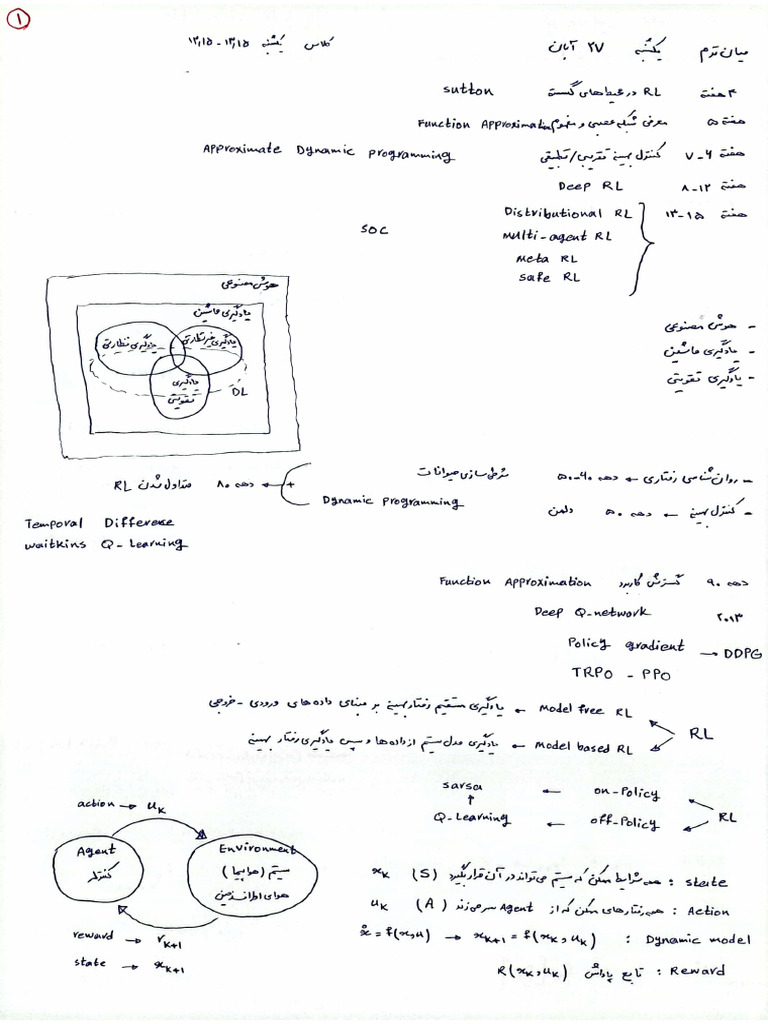 ۱
میان ترم یکشنبه ۲۷ آبان کلاس یکشنبه ۱۳٫۱۵ - ۱۴٫۱۵
۴ هفته RL در محیط‌های گسسته sutton
هفته ۵ معرفی شبکه عصبی و مفهوم Function Approximation
هفته ۶-۷ کنترل بهینه تقریبی/تطبیقی Approximate Dynamic programming
هفته ۸-۱۲ Deep RL
هفته ۱۳-۱۵ Distributional RL
SOC
Multi-agent RL
Meta RL
Safe RL
هوش مصنوعی
یادگیری ماشین
یادگیری نظارتی
یادگیری غیرنظارتی
یادگیری تقویتی
DL
- هوش مصنوعی
- یادگیری ماشین
- یادگیری تقویتی
- روان شناسی رفتاری ← دهه ۴۰-۵۰ شرطی سازی حیوانات
+ ← دهه ۸۰ متداول شدن RL
- کنترل بهینه ← دهه ۵۰ Dynamic Programming
Temporal Difference
Waitkins Q-Learning
دهه ۹۰ گسترش کاربرد Function Approximation
۲۰۱۳ Deep Q-network
Policy gradient → DDPG
TRPO - PPO
RL
Model free RL ← یادگیری مستقیم رفتار بهینه بر مبنای داده های ورودی - خروجی
Model based RL ← یادگیری مدل سیستم از داده ها و سپس یادگیری رفتار بهینه
RL
on-Policy ← sarsa
off-Policy ← Q-Learning
action → uₖ
Agent
کنترلر
Environment
سیستم (هواپیما)
هوای اطراف، زمین
reward → rₖ₊₁
state → xₖ₊₁
state : همه شرایط ممکن که سیستم می تواند در آن قرار بگیرد (S) xₖ
Action : همه رفتارهای ممکن که از Agent سر می زند (A) uₖ
Dynamic model : ẋ = f(x,u) → xₖ₊₁ = f(xₖ,uₖ)
Reward : تابع پاداش R(xₖ,uₖ)